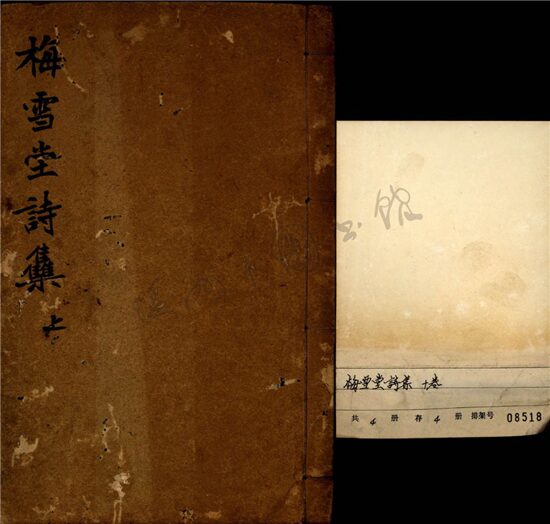 梅雪堂詩集
上
梅雪堂詩集 十卷
共 4 册 存 4 册 排架号 08518